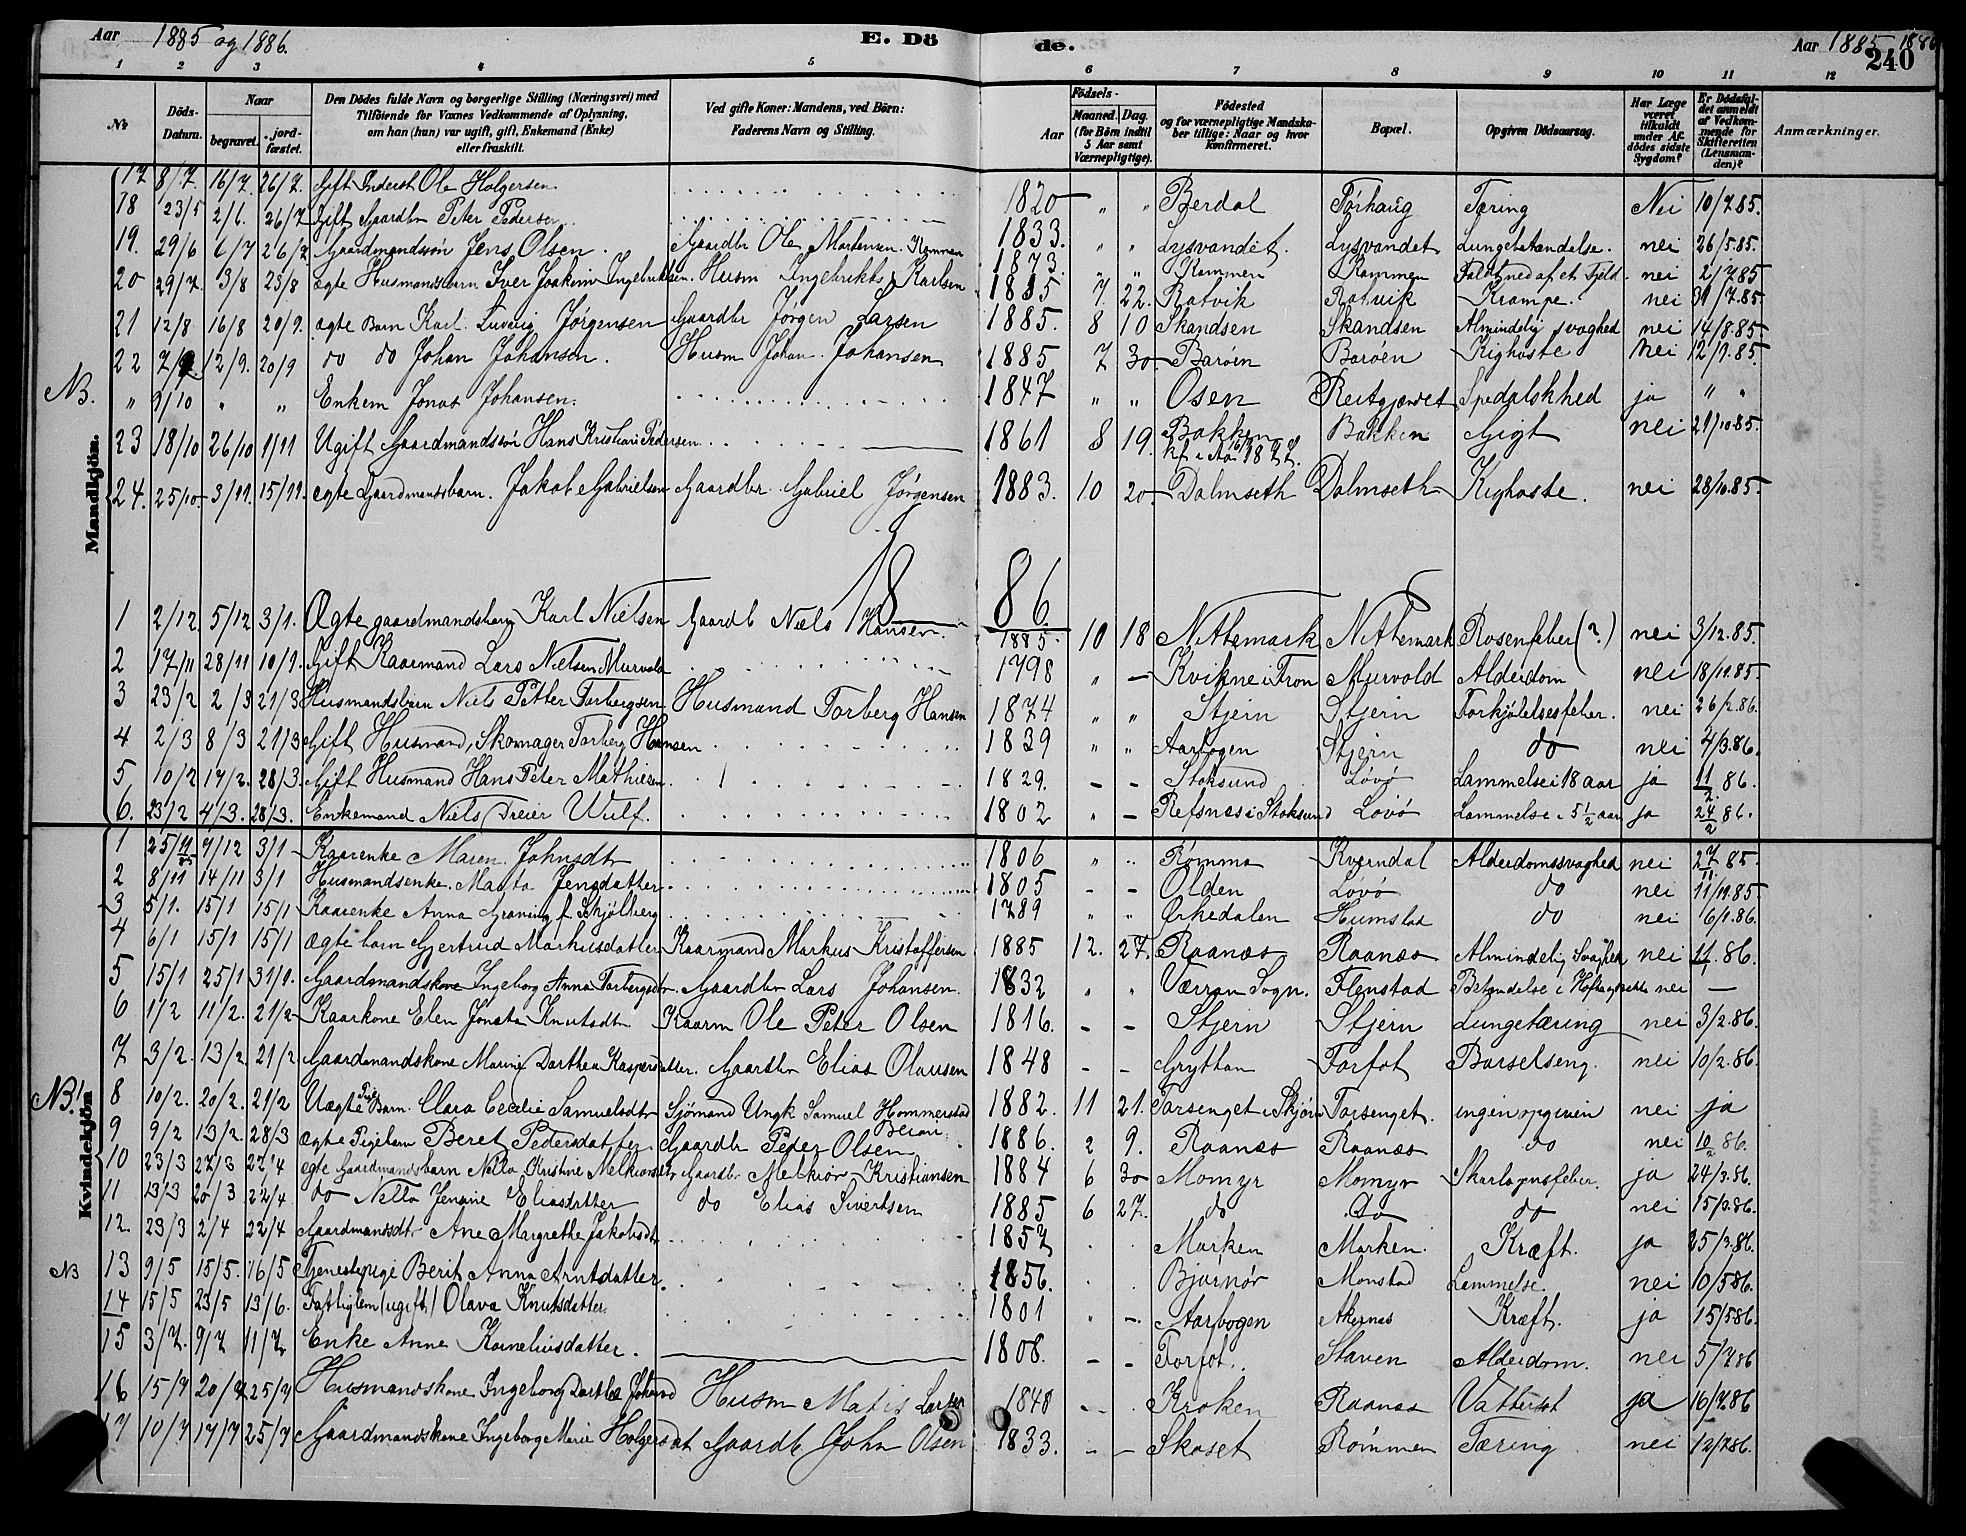 Aar 1885 og 1886. E. Dö de. Aar 1885 1886
240
1 2 3 4 5 6 7 8 9 10 11 12
№ Döds-Datum. Naar begravet. jord-fæstet. Den Dödes fulde Navn og borgerlige Stilling (Næringsvei) med Tilföiende for Voxnes Vedkommende af Oplysning, om han (hun) var ugift, gift, Enkemand (Enke) eller fraskilt. Ved gifte Koner: Mandens, ved Börn: Faderens Navn og Stilling. Födsels- Aar Maaned. Dag. (for Börn indtil 5 Aar samt Værnepligtige). Födested og for værnepligtige Mandskaber tillige: Naar og hvor Konfirmeret. Bopæl. Opgiven Dödsaarsag. Har Læge været tilkaldt under Afdödes sidste Sygdom? Er Dödsfaldet anmeldt af Vedkommende for Skifteretten (Lensmanden)? Anmærkninger.
Mandkjön.
17 8/7. 16/7 26/7. Gift Inderst Ole Holgersen. 1820 " " Berdal Tørhaug Tæring Nei 10/7 85.
18 23/5 2/6. 26/7 Gift Gaardbr Peter Pedersen. 1833. " " Lysvandet. Lysvandet Lungebetændelse. nei 26/5 85.
19. 29/6 6/7 26/7 Gaardmandssøn Jens Olsen. Gaardbr Ole Martensen. Kommen 1873. " " Kommen Kommen Faldt ned af et Fjeld. nei 2/7 85
20 29/7. 3/8 23/8 ægte Husmandsbarn Iver Joakim Ingebriktsen. Husm Ingebrikts Karlsen 1885 7. 22. Ratvik Ratvik Krampe. nei 31/7.85
21 12/8 16/8 20/9. ægte Barn Karl Ludvig Jørgensen Gaardbr Jørgen Larsen 1885. 8 10 Skandsen Skandsen Almindelig svaghed nei 14/8.85
22 7/9. 12/9. 20/9 do do Johan Johansen. Husm Johan Johansen 1885 7 30. Barøen Barøen Kighoste Nei 12/9.85
NB. " 9/10 " " Enkem Jonas Johansen. 1847 " " Osen Reitgjerdet Spedalskhed ja " "
23 18/10 26/10 1/11 Ugift Gaardmandssøn Hans Kristian Pedersen 1861 8 19. Bakken Bakken Gigt nei 21/10 85.
24. 25/10. 3/11. 15/11. ægte Gaardmandsbarn. Jakob Gabrielsen Gaardbr. Gabriel Jørgensen 1883. 10 20. Dalmseth Dalmseth Kighoste. nei 28/10.85.
1886
1 2/12. 5/12 3/1. Ægte gaardmandsbarn Karl Nielsen Gaardb Niels Hansen. 1885. 10 18 Nittemark Nittemark Rosenfeber (?) nei 3/12.85.
2 17/11 28/11 10/1. Gift Kaarmand Lars Nielsen Murvold 1798 " – Kvikne i Fron Murvold Alderdom nei 18/11.85
3 23/2 2/3 21/3 Husmandsbarn Niels Petter Torbergsen Husmand Torberg Hansen 1874 " " Stjern Stjern Forkjølelsesfeber. nei 26/2.86.
4 2/3 8/3 21/3 Gift Husmand, Skomager Torberg Hansen 1839 " " Aarbogen Stjern do nei 4/3.86.
5 10/2 17/2. 28/3. Gift Husmand Hans Peter Mathisen. 1829. – – Stoksund Løvø Lammelse i 18 aar ja 11/2 86.
6. 23/2 4/3. 28/3. Enkemand Niels Dreier Wulf. 1802 " – Refsnæs i Stoksund Løvø Lammelse i 5 1/2 aar ja 24/2 86.
Kvindekjön
1 25/11 85 4/12 3/1 Kaarenke Maren Johnsdt 1806 " " Rømma Kverndal Alderdomssvaghed nei 27/11 85.
2 8/11 14/11 3/1 Husmandsenke. Marta Jensdatter 1805 – – Olden Løvø do nei 11/11.85
3 5/1. 15/1 15/1 Kaarenke Anna Graning f. Skjølberg 1789 " " Ørkedalen Humstad do nei 6/1.86.
4 6/1 15/1 15/1 Ægte barn Gjertrud Markusdatter Kaarmand Markus Kristoffersen 1885 12. 27. Raanæs Raanæs Almindelig Svaghed nei 11/1.86.
5 15/1 25/1 31/1. Gaardmandskone Ingeborg Anna Torbergsdtr Gaardbr Lars Johansen. 1832 " " Værran Sogn. Flenstad Betændelse i nei —
6 1/2 11/2. 21/2 Kaarkone Elen Jonsta Knutsdt Kaarm Ole Peter Olsen 1816. – – Stjern Stjern Lungetæring nei 3/2.86.
7 3/2. 13/2 21/2 Gaardmandskone Marie Dorthea Kaspersdatter. Gaardbr Elias Olausen 1848 – – Gryttan Forfot Barselseng. nei 10/2.86.
NB! 8 10/2. 20/2. 21/2 Uægte Pige Barn. Clara Cecilie Samuelsdt Sjømand Ungk Samuel Hommerstad Beian 1882. 11 21. Torsenget i Skjørn Torsenget. ingen opgiven nei ja
9 9/2 13/2. 28/3 ægte Pigebarn Beret Pedersdatter Gaardbr Peder Olsen 1886. 2 9. Raanæs Raanæs do nei 10/2 86.
10 23/3 27/3 22/4 ægte Gaardmandsbarn Nella Kristine Melkiorsdtr Gaardb. Melkior Kristiansen 1884 6 30 Momyr Momyr Skarlagensfeber. ja 24/3.86.
11 13/3 20/3 22/4. do Nella Jensine Eliasdatter do Elias Sivertsen 1885 6 27. do Do do nei 15/3.86.
12. 23/3 2/4 22/4 Gaardmandsdt. Ane Margrethe Jakobsdt 1857 Marken Marken. Kræft. ja 25/3.86.
NB 13 9/5 15/5. 16/5 Tjenestepige Berit Anna Arntsdatter. 1856. Bjørnør Monstad Lammelse. nei 10/5 86.
14 15/5 23/5 13/6. Fattiglem (ugift) Olava Knutsdatter 1801 " – Aarbogen Akernes Kræft. ja 15/5 86.
15 3/7. 9/7 11/7 Enke Anne Korneliusdatter. 1808. – – Forfot. Staven Alderdom. nei 5/7 86
16 15/7 20/7 25/7 Husmandskone Ingeborg Dorthea Johansd Husm Matis Larsen 1848 – – Kroken Raanæs Vattersot ja 16/7.86
17 10/7 17/7 25/7 Gaardmandskone Ingeborg Marie Holgersdt Gaardb John Olsen 1833. – – Skaset Rømmen Tæring nei 12/7 86.